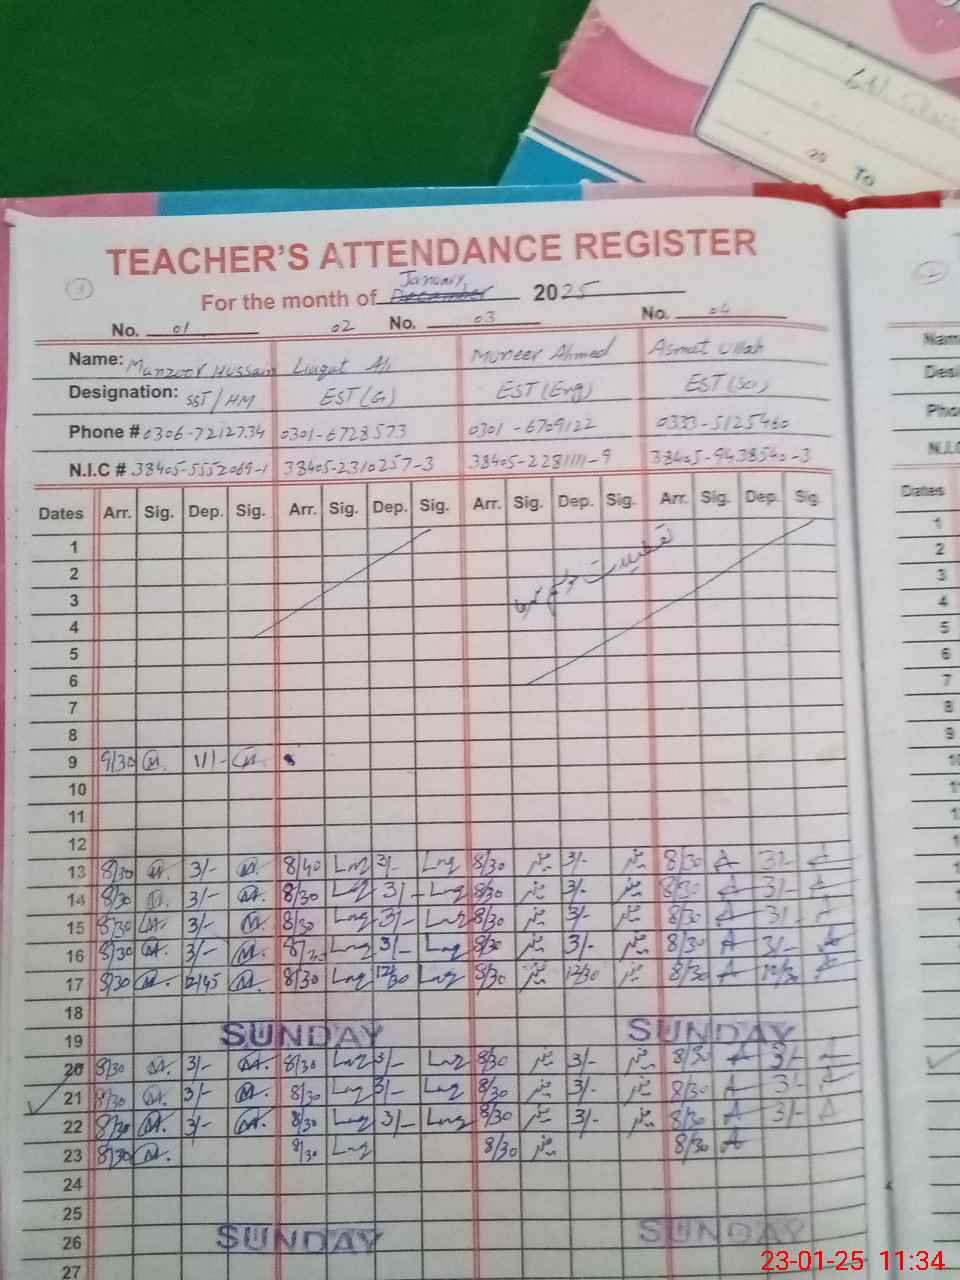 20 To
TEACHER'S ATTENDANCE REGISTER
1
For the month of December January 2025
No. 01 02 No. 03 No. 04
Name: Manzoor Hussain Liaqat Ali Muneer Ahmed Asmat Ullah
Designation: SST/HM EST(G) EST(Eng) EST(Sci)
Phone # 0306-7212734 0301-6728573 0301-6709122 0333-5125460
N.I.C # 38405-5552069-1 38405-2310257-3 38405-2281111-9 38405-9438540-3
Dates Arr. Sig. Dep. Sig. Arr. Sig. Dep. Sig. Arr. Sig. Dep. Sig. Arr. Sig. Dep. Sig.
1
2
3
4
5
6
7
8
9 9/30 M. 11/- M.
10
11
12
13 8/30 M. 3/- M. 8/40 Laq 3/- Laq 8/30 منیر 3/- منیر 8/30 A 3/- A
14 8/30 M. 3/- M. 8/30 Laq 3/- Laq 8/30 منیر 3/- منیر 8/30 A 3/- A
15 8/30 M. 3/- M. 8/30 Laq 3/- Laq 8/30 منیر 3/- منیر 8/30 A 3/- A
16 8/30 M. 3/- M. 8/30 Laq 3/- Laq 8/30 منیر 3/- منیر 8/30 A 3/- A
17 8/30 M. 12/45 M. 8/30 Laq 12/30 Laq 8/30 منیر 12/30 منیر 8/30 A 12/30 A
18
19 SUNDAY SUNDAY
20 8/30 M. 3/- M. 8/30 Laq 3/- Laq 8/30 منیر 3/- منیر 8/30 A 3/- A
21 8/30 M. 3/- M. 8/30 Laq 3/- Laq 8/30 منیر 3/- منیر 8/30 A 3/- A
22 8/30 M. 3/- M. 8/30 Laq 3/- Laq 8/30 منیر 3/- منیر 8/30 A 3/- A
23 8/30 M. 8/30 Laq 8/30 منیر 8/30 A
24
25
26 SUNDAY SUNDAY
27
2
Name
Desi
Pho
N.I.C
Dates
1
2
3
4
5
6
7
8
9
10
23-01-25 11:34